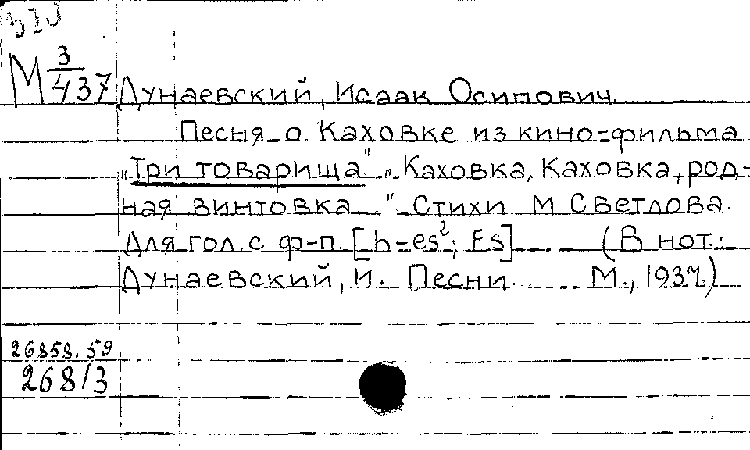 М 3/437
Дунаевский, Исаак Осипович.
Песня о Каховке из кино-фильма
„Три товарища" „Каховка, Каховка, род-
ная винтовка..." Стихи М Светлова.
Для гол. с ф-п. [h-es²; Es] (В нот.:
Дунаевский, И. Песни. М., 1937)
26858.59
268/3